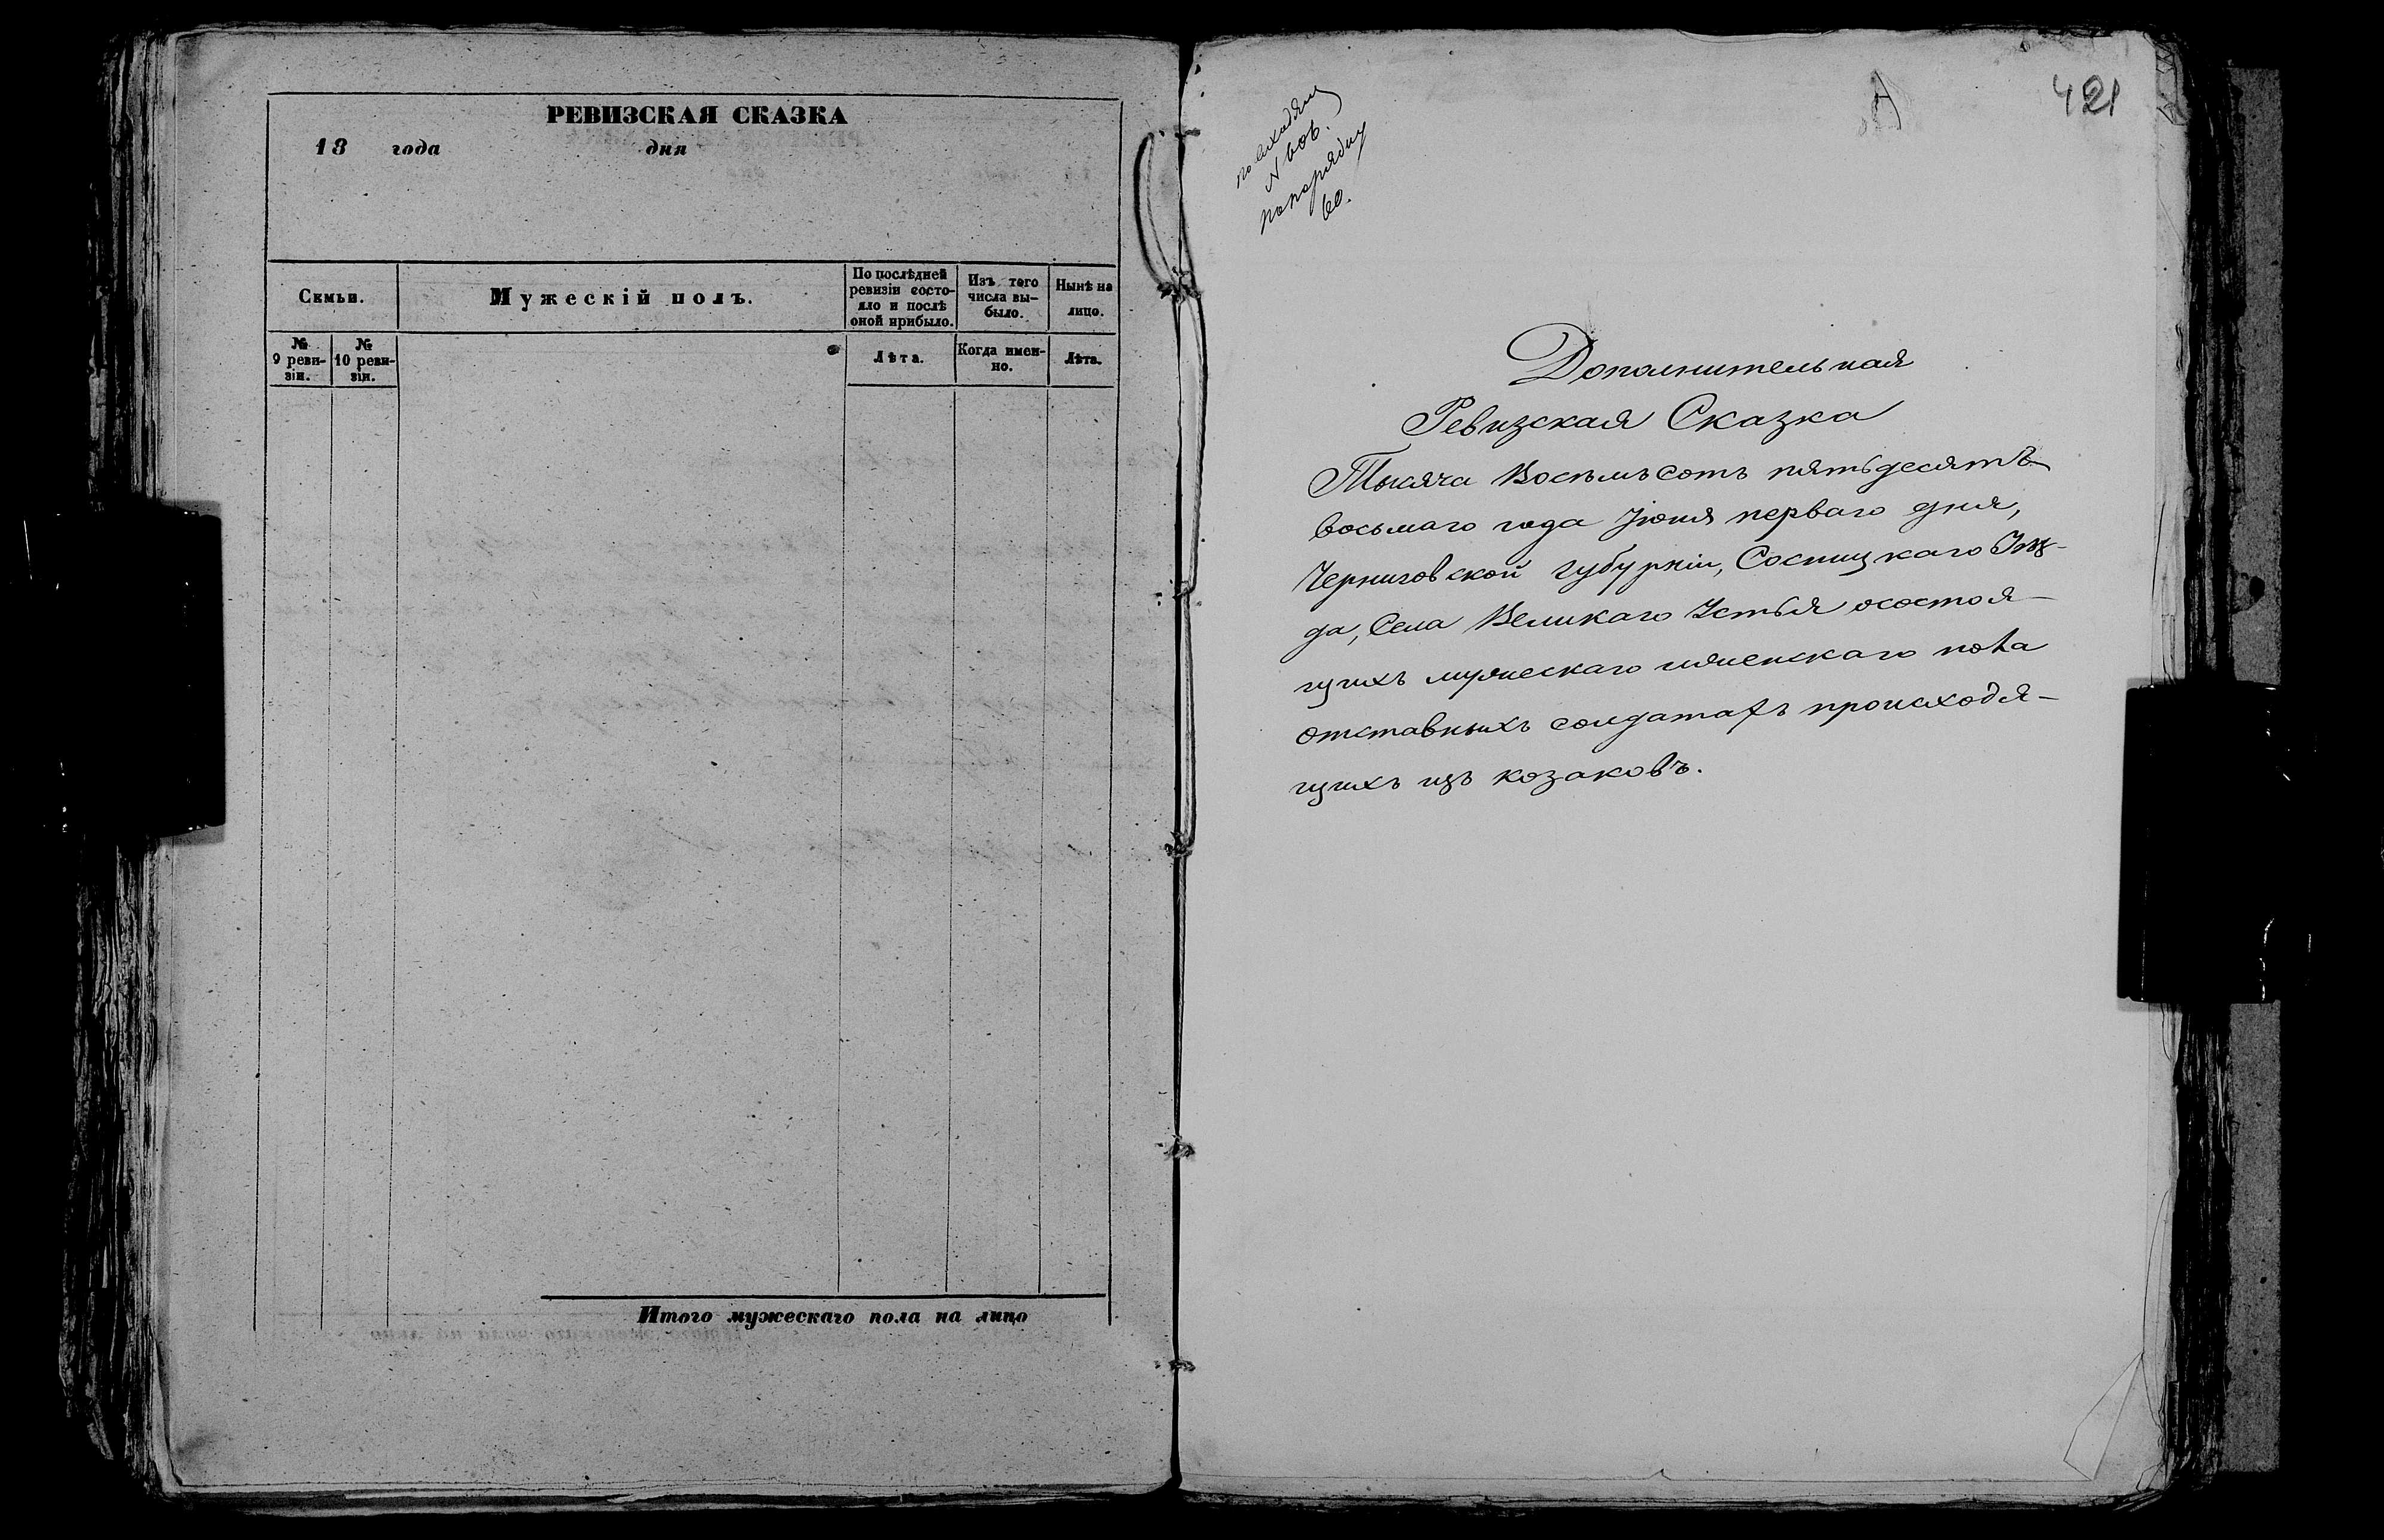 РЕВИЗСКАЯ СКАЗКА
18 года дня
Семьи.
Мужескій полъ.
По послѣдней ревизіи состо-
яло и послѣ
оной прибыло.
Изъ того
числа вы-
было.
Нынѣ на
лицо.
№
9 реви-
зіи.
№
10 реви-
зіи.
Лѣта.
Когда имен-
но.
Лѣта.
Итого мужескаго пола на лицо
421
N 606.
по порядку
60.
Дополнительная
Ревизская Сказка
Тысяча Восемьсотъ пятьдесятъ
восьмаго года Іюня перваго дня,
Черниговской губерніи, Сосницкаго Уѣз-
да, Села Великаго Устья осостоя-
щихъ мужескаго иженскаго пола
отставныхъ солдатахъ происходя-
щихъ изъ козаковъ.